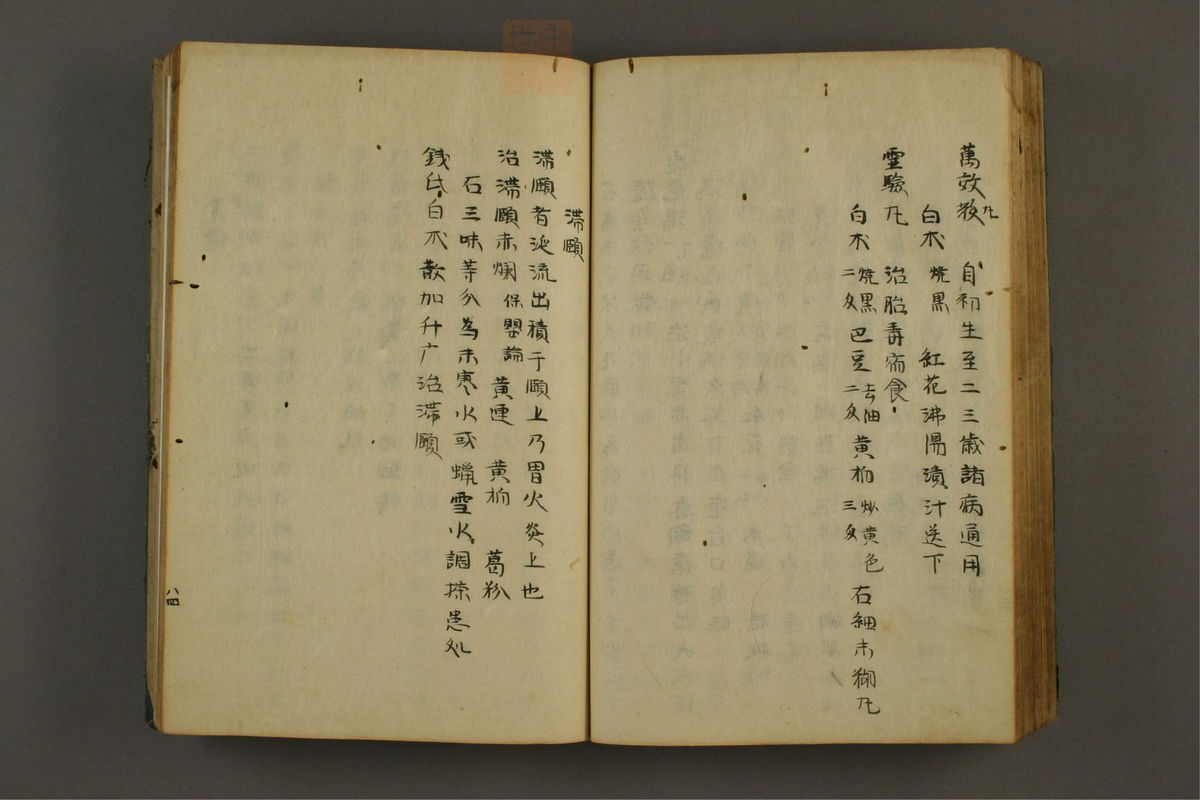 萬效散丸 自初生至二三歳諸病通用
白朮 焼黒 紅花沸湯漬汁送下
霊驗丸 治胎毒宿食
白朮 焼黒二匁 巴豆 去油二匁 黄栢 炒黄色三匁 右細末糊丸
滞頤
滞頤者涎流出積于頤上乃胃火炎上也
治滞頤赤爛 保嬰論 黄連 黄栢 葛粉
石三味等分為末寒水或蠟雪水調搽患処
銭氏白朮散加升广治滞頤
八四